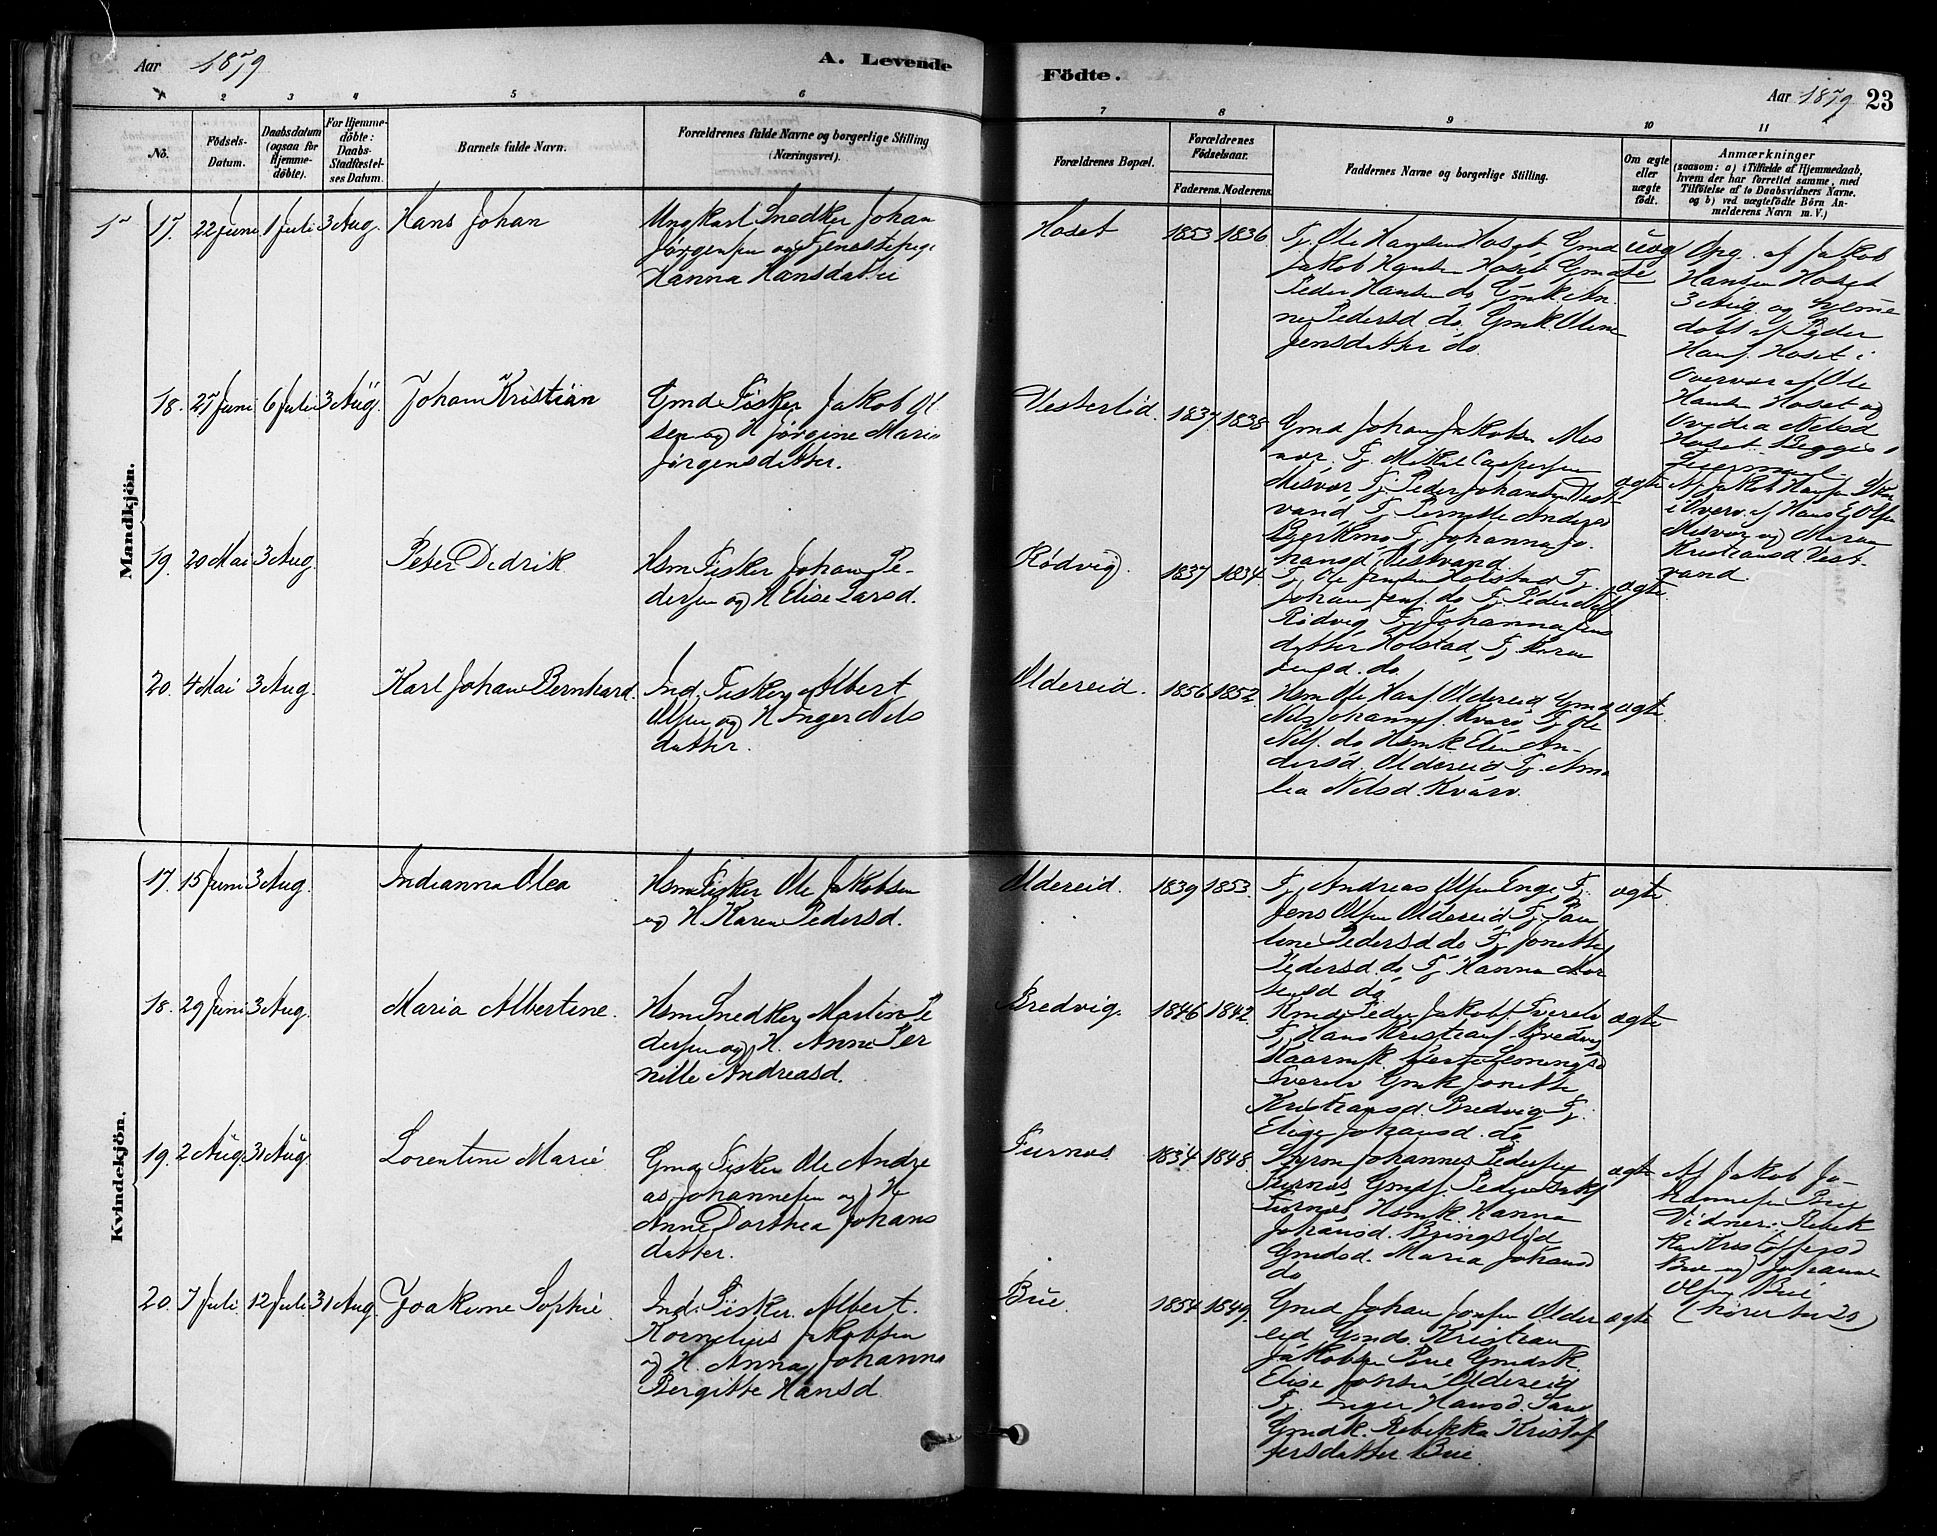 Aar 1879 A. Levende Födte. Aar 1879 23
1 2 3 4 5 6 7 8 9 10 11
No.
Födsels-
Datum.
Daabsdatum
(ogsaa for
Hjemme-
döbte).
For Hjemme-
döbte:
Daabs-
Stadfæstel-
ses Datum.
Barnets fulde Navn.
Forældrenes fulde Navne og borgerlige Stilling
(Næringsvei).
Forældrenes Bopæl.
Forældrenes
Födselsaar.
Faderens. Moderens.
Faddernes Navne og borgerlige Stilling.
Om ægte
eller
uægte
födt.
Anmærkninger
(saasom: a) i Tilfælde af Hjemmedaab,
hvem der har forrettet samme, med
Tilföielse af to Daabsvidners Navne.
og b) ved uægtefödte Börn An-
melderens Navn m.V.)
Mandkjön.
17. 22 Juni 1 Juli 3 Aug. Hans Johan
Ungkarl Snedker Johan
Jørgensen og Tjenestepige
Hanna Hansdatter
Hoset 1853 1836
Tj. Ole Hansen Hoset Gmd
Jakob Hansen Hoset Gmd
Peder Hansen do. Gmk. An-
ne Pedersd. do. Gmk. Oline
Jensdatter do.
uæg
te
Opg. af Jakob
Hansen Hoset
3 Aug. og hjemme
døbt af Peder
Hans. Hoset i
Overvær af Ole
Hansen Hoset og
Nilsd
Hoset. Begges
18. 27 Juni 6 Juli 3 Aug. Johan Kristian
Gmd. Fisker Jakob Ol
sen og H. Jørgine Maria
Jørgensdatter.
Vesterlid. 1837 1838
Gmd Johan Jakobsen Mis
vær. Tj. Mikal Caspersen
Misvær Tj. Peder Johansen Vest
vand Tj. Pernille Anders
Bjerkmo Tj. Johanna Jo
hansd. Vestvand.
ægte
Af Jakob Hansen
i Overv. af Hans E. Olsen
Misvær og Maren
Kristiansd. Vest-
vand.
19. 20 Mai 3 Aug. Peter Didrik
Hsm Fisker Johan Pe-
dersen og H. Elise Larsd.
Rødvig. 1837 1834
Tj. Ole Jensen Kolstad Tj.
Johan Jens. do Tj. Peder
Rødvig Tj. Johanna Jens
datter Kolstad, Tj. Karen
Jensd. do.
ægte.
20. 4 Mai 3 Aug. Karl Johan Bernhard.
Ind. Fisker Albert
Olsen og H. Inger Nils
datter.
Oldereid. 1856 1852
Hsm Ole Hans. Oldereid Gmd
Nils Johannes. Kvarv Tj. Ole
Nils. do Hsmk Elen An-
dersd. Oldereid Tj. Ama
lia Nilsd. Kvarv.
ægte.
Kvindekjön.
17. 15 Juni 3 Aug. Indianna Olea
Hsm Fisker Ole Jakobsen
og H. Karen Pedersd.
Oldereid. 1839 1853.
Tj. Andreas Olsen Enge Tj.
Jens Olsen Oldereid Tj. Pau
line Pedersd do Tj. Jonette
Pedersd. do Tj. Hanna Mor
tensd do
ægte.
18. 29 Juni 3 Aug. Maria Albertine.
Hsm Snedker Martin Pe
dersen og H. Anne Per
nille Andreasd.
Bredvig. 1846 1842.
Peder Jakobs. Tverelv
Tj. Hans Kristians. Bredvig
Kaarmk.
Tverelv Gmk Jonette
Kristiansd. Bredvig Tj.
Elise Johansd. do
ægte
19. 2 Aug. 31 Aug. Lorentine Marie
Gmd. Fisker Ole Andre
as Johannesen og H
Anne Dorthea Johans
datter.
Furnes 1834 1848.
Johannes Pedersen
Furnes, Gmds. Peder
Furnes, Hsmk Hanna
Johansd. Bringslid
Gmdsd. Maria Johansd
do
ægte
Af Jakob Jo-
hannesen Brie
Vidner: Rebek
ka Kristoffersd
Brie og Johanne
Olsen Brie
(hører til 20)
20. 7 Juli. 12 Juli 31 Aug. Joakime Sophie
Ind. Fisker Albert
Kornelius Jakobsen
og H. Anna Johanna
Bergitte Hansd.
Brie. 1854 1849.
Gmd Johan Jonsen Older
eid Gmds. Kristian
Jakobsen Brie Gmdsk.
Elise Oldereid
Tj. Inger Hansd.
Gmdk. Rebekka Kristof
fersdatter Brie.
ægte